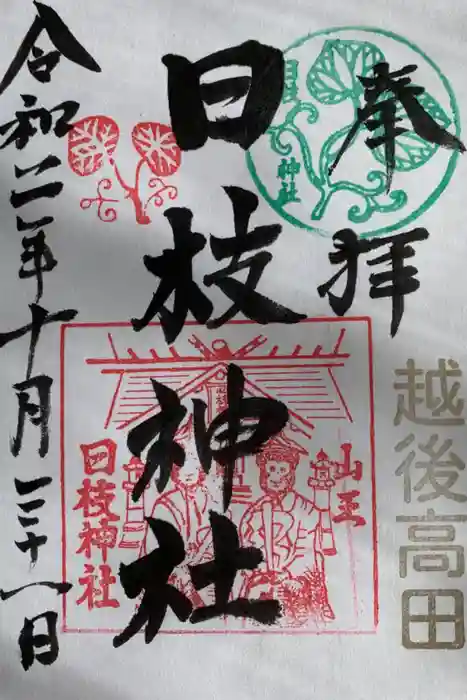 奉拝
越後高田
日枝神社
日枝神社
山王
日枝神社
令和二年十月三十一日